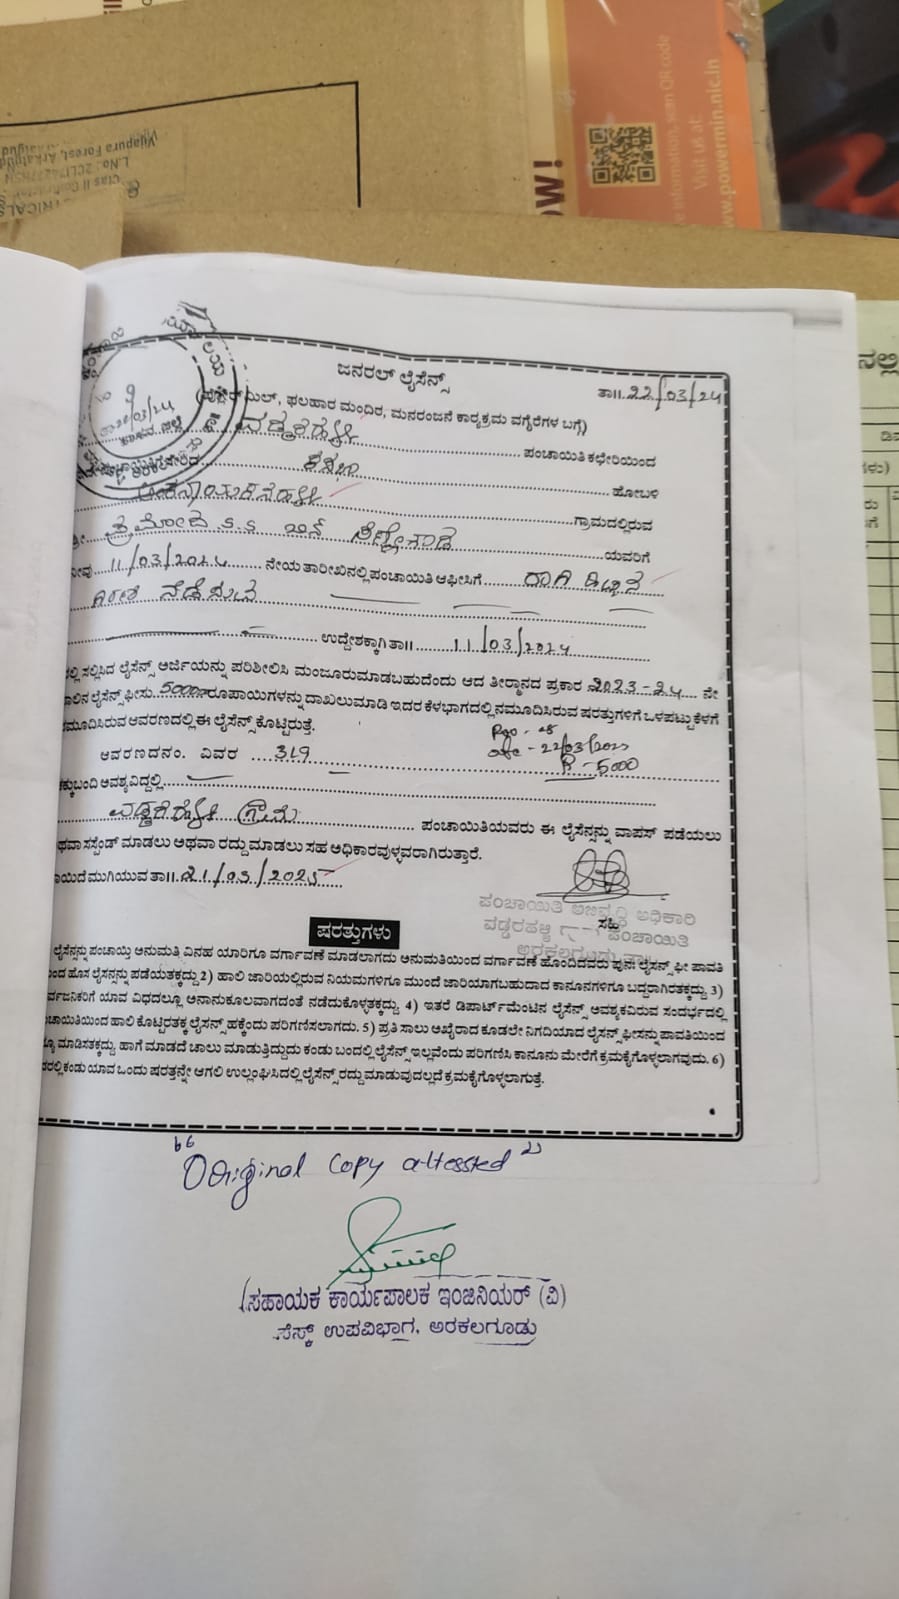 information, scan QR code
Visit us at:
www.powermin.nic.in
OW!
Vijapura Forest, Arkalgud
ಜನರಲ್ ಲೈಸೆನ್ಸ್
ತಾ॥ 22/03/24
(ಫ್ಲೋರ್ ಮಿಲ್, ಫಲಹಾರ ಮಂದಿರ, ಮನರಂಜನೆ ಕಾರ್ಯಕ್ರಮ ವಗೈರೆಗಳ ಬಗ್ಗೆ)
ವಡ್ಡರಹಳ್ಳಿ ಪಂಚಾಯಿತಿ ಕಛೇರಿಯಿಂದ
ಕಸಬಾ ಹೋಬಳಿ
ಗ್ರಾಮದಲ್ಲಿರುವ
ಶ್ರೀ ಪ್ರಮೋದ S.S ಬಿನ್ ಯವರಿಗೆ
ನೀವು 11/03/2024 ನೇಯ ತಾರೀಖಿನಲ್ಲಿ ಪಂಚಾಯಿತಿ ಆಫೀಸಿಗೆ ರಾಗಿ ಹಿಟ್ಟಿನ
ಗಿರಣಿ ನಡೆಸುವ
ಉದ್ದೇಶಕ್ಕಾಗಿ ತಾ॥ 11/03/2024
ಸಲ್ಲಿಸಿದ ಲೈಸೆನ್ಸ್ ಅರ್ಜಿಯನ್ನು ಪರಿಶೀಲಿಸಿ ಮಂಜೂರುಮಾಡಬಹುದೆಂದು ಆದ ತೀರ್ಮಾನದ ಪ್ರಕಾರ 2023-24 ನೇ
ಸಾಲಿನ ಲೈಸೆನ್ಸ್ ಫೀಸು 5000 ರೂಪಾಯಿಗಳನ್ನು ದಾಖಲುಮಾಡಿ ಇದರ ಕೆಳಭಾಗದಲ್ಲಿ ನಮೂದಿಸಿರುವ ಷರತ್ತುಗಳಿಗೆ ಒಳಪಟ್ಟು ಕೆಳಗೆ
ನಮೂದಿಸಿರುವ ಆವರಣದಲ್ಲಿ ಈ ಲೈಸೆನ್ಸ್ ಕೊಟ್ಟಿರುತ್ತೆ.
ಆವರಣದ ನಂ. ವಿವರ 319
22/03/2023
R - 5000
ಚಕ್ಕುಬಂದಿ ಅವಶ್ಯವಿದ್ದಲ್ಲಿ
ವಡ್ಡರಹಳ್ಳಿ ಗ್ರಾಮ ಪಂಚಾಯಿತಿಯವರು ಈ ಲೈಸೆನ್ಸನ್ನು ವಾಪಸ್ ಪಡೆಯಲು
ಅಥವಾ ಸಸ್ಪೆಂಡ್ ಮಾಡಲು ಅಥವಾ ರದ್ದು ಮಾಡಲು ಸಹ ಅಧಿಕಾರವುಳ್ಳವರಾಗಿರುತ್ತಾರೆ.
ವಾಯಿದೆ ಮುಗಿಯುವ ತಾ॥ 21/03/2025
ಸಹಿ
ಪಂಚಾಯಿತಿ ಅಭಿವೃದ್ಧಿ ಅಧಿಕಾರಿ
ವಡ್ಡರಹಳ್ಳಿ ಗ್ರಾಮ ಪಂಚಾಯಿತಿ
ಅರಕಲಗೂಡು ತಾ.
ಷರತ್ತುಗಳು
ಲೈಸೆನ್ಸನ್ನು ಪಂಚಾಯ್ತಿ ಅನುಮತಿ ವಿನಹ ಯಾರಿಗೂ ವರ್ಗಾವಣೆ ಮಾಡಲಾಗದು ಅನುಮತಿಯಿಂದ ವರ್ಗಾವಣೆ ಹೊಂದಿದವರು ಪುನಃ ಲೈಸೆನ್ಸ್ ಫೀ ಪಾವತಿ
ಹೊಸ ಲೈಸೆನ್ಸನ್ನು ಪಡೆಯತಕ್ಕದ್ದು 2) ಹಾಲಿ ಜಾರಿಯಲ್ಲಿರುವ ನಿಯಮಗಳಿಗೂ ಮುಂದೆ ಜಾರಿಯಾಗಬಹುದಾದ ಕಾನೂನಗಳಿಗೂ ಬದ್ದರಾಗಿರತಕ್ಕದ್ದು. 3)
ಸಾರ್ವಜನಿಕರಿಗೆ ಯಾವ ವಿಧದಲ್ಲೂ ಅನಾನುಕೂಲವಾಗದಂತೆ ನಡೆದುಕೊಳ್ಳತಕ್ಕದ್ದು. 4) ಇತರೆ ಡಿಪಾರ್ಟ್‌ಮೆಂಟಿನ ಲೈಸೆನ್ಸ್ ಅವಶ್ಯಕವಿರುವ ಸಂದರ್ಭದಲ್ಲಿ
ಪಂಚಾಯಿತಿಯಿಂದ ಹಾಲಿ ಕೊಟ್ಟಿರತಕ್ಕ ಲೈಸೆನ್ಸ್ ಹಕ್ಕೆಂದು ಪರಿಗಣಿಸಲಾಗದು. 5) ಪ್ರತಿ ಸಾಲು ಅಖೈರಾದ ಕೂಡಲೇ ನಿಗದಿಯಾದ ಲೈಸೆನ್ಸ್ ಫೀಸನ್ನು ಪಾವತಿಯಿಂದ
ಮಾಡಿಸತಕ್ಕದ್ದು. ಹಾಗೆ ಮಾಡದೆ ಚಾಲು ಮಾಡುತ್ತಿದ್ದುದು ಕಂಡು ಬಂದಲ್ಲಿ ಲೈಸೆನ್ಸ್ ಇಲ್ಲವೆಂದು ಪರಿಗಣಿಸಿ ಕಾನೂನು ಮೇರೆಗೆ ಕ್ರಮಕೈಗೊಳ್ಳಲಾಗವುದು. 6)
ಕಂಡು ಯಾವ ಒಂದು ಷರತ್ತನ್ನೇ ಆಗಲಿ ಉಲ್ಲಂಘಿಸಿದಲ್ಲಿ ಲೈಸೆನ್ಸ್ ರದ್ದು ಮಾಡುವುದಲ್ಲದೆ ಕ್ರಮಕೈಗೊಳ್ಳಲಾಗುತ್ತೆ.
"Original Copy attessted"
ಸಹಾಯಕ ಕಾರ್ಯಪಾಲಕ ಇಂಜಿನಿಯರ್ (ವಿ)
ಸೆಸ್ಕ್ ಉಪವಿಭಾಗ, ಅರಕಲಗೂಡು